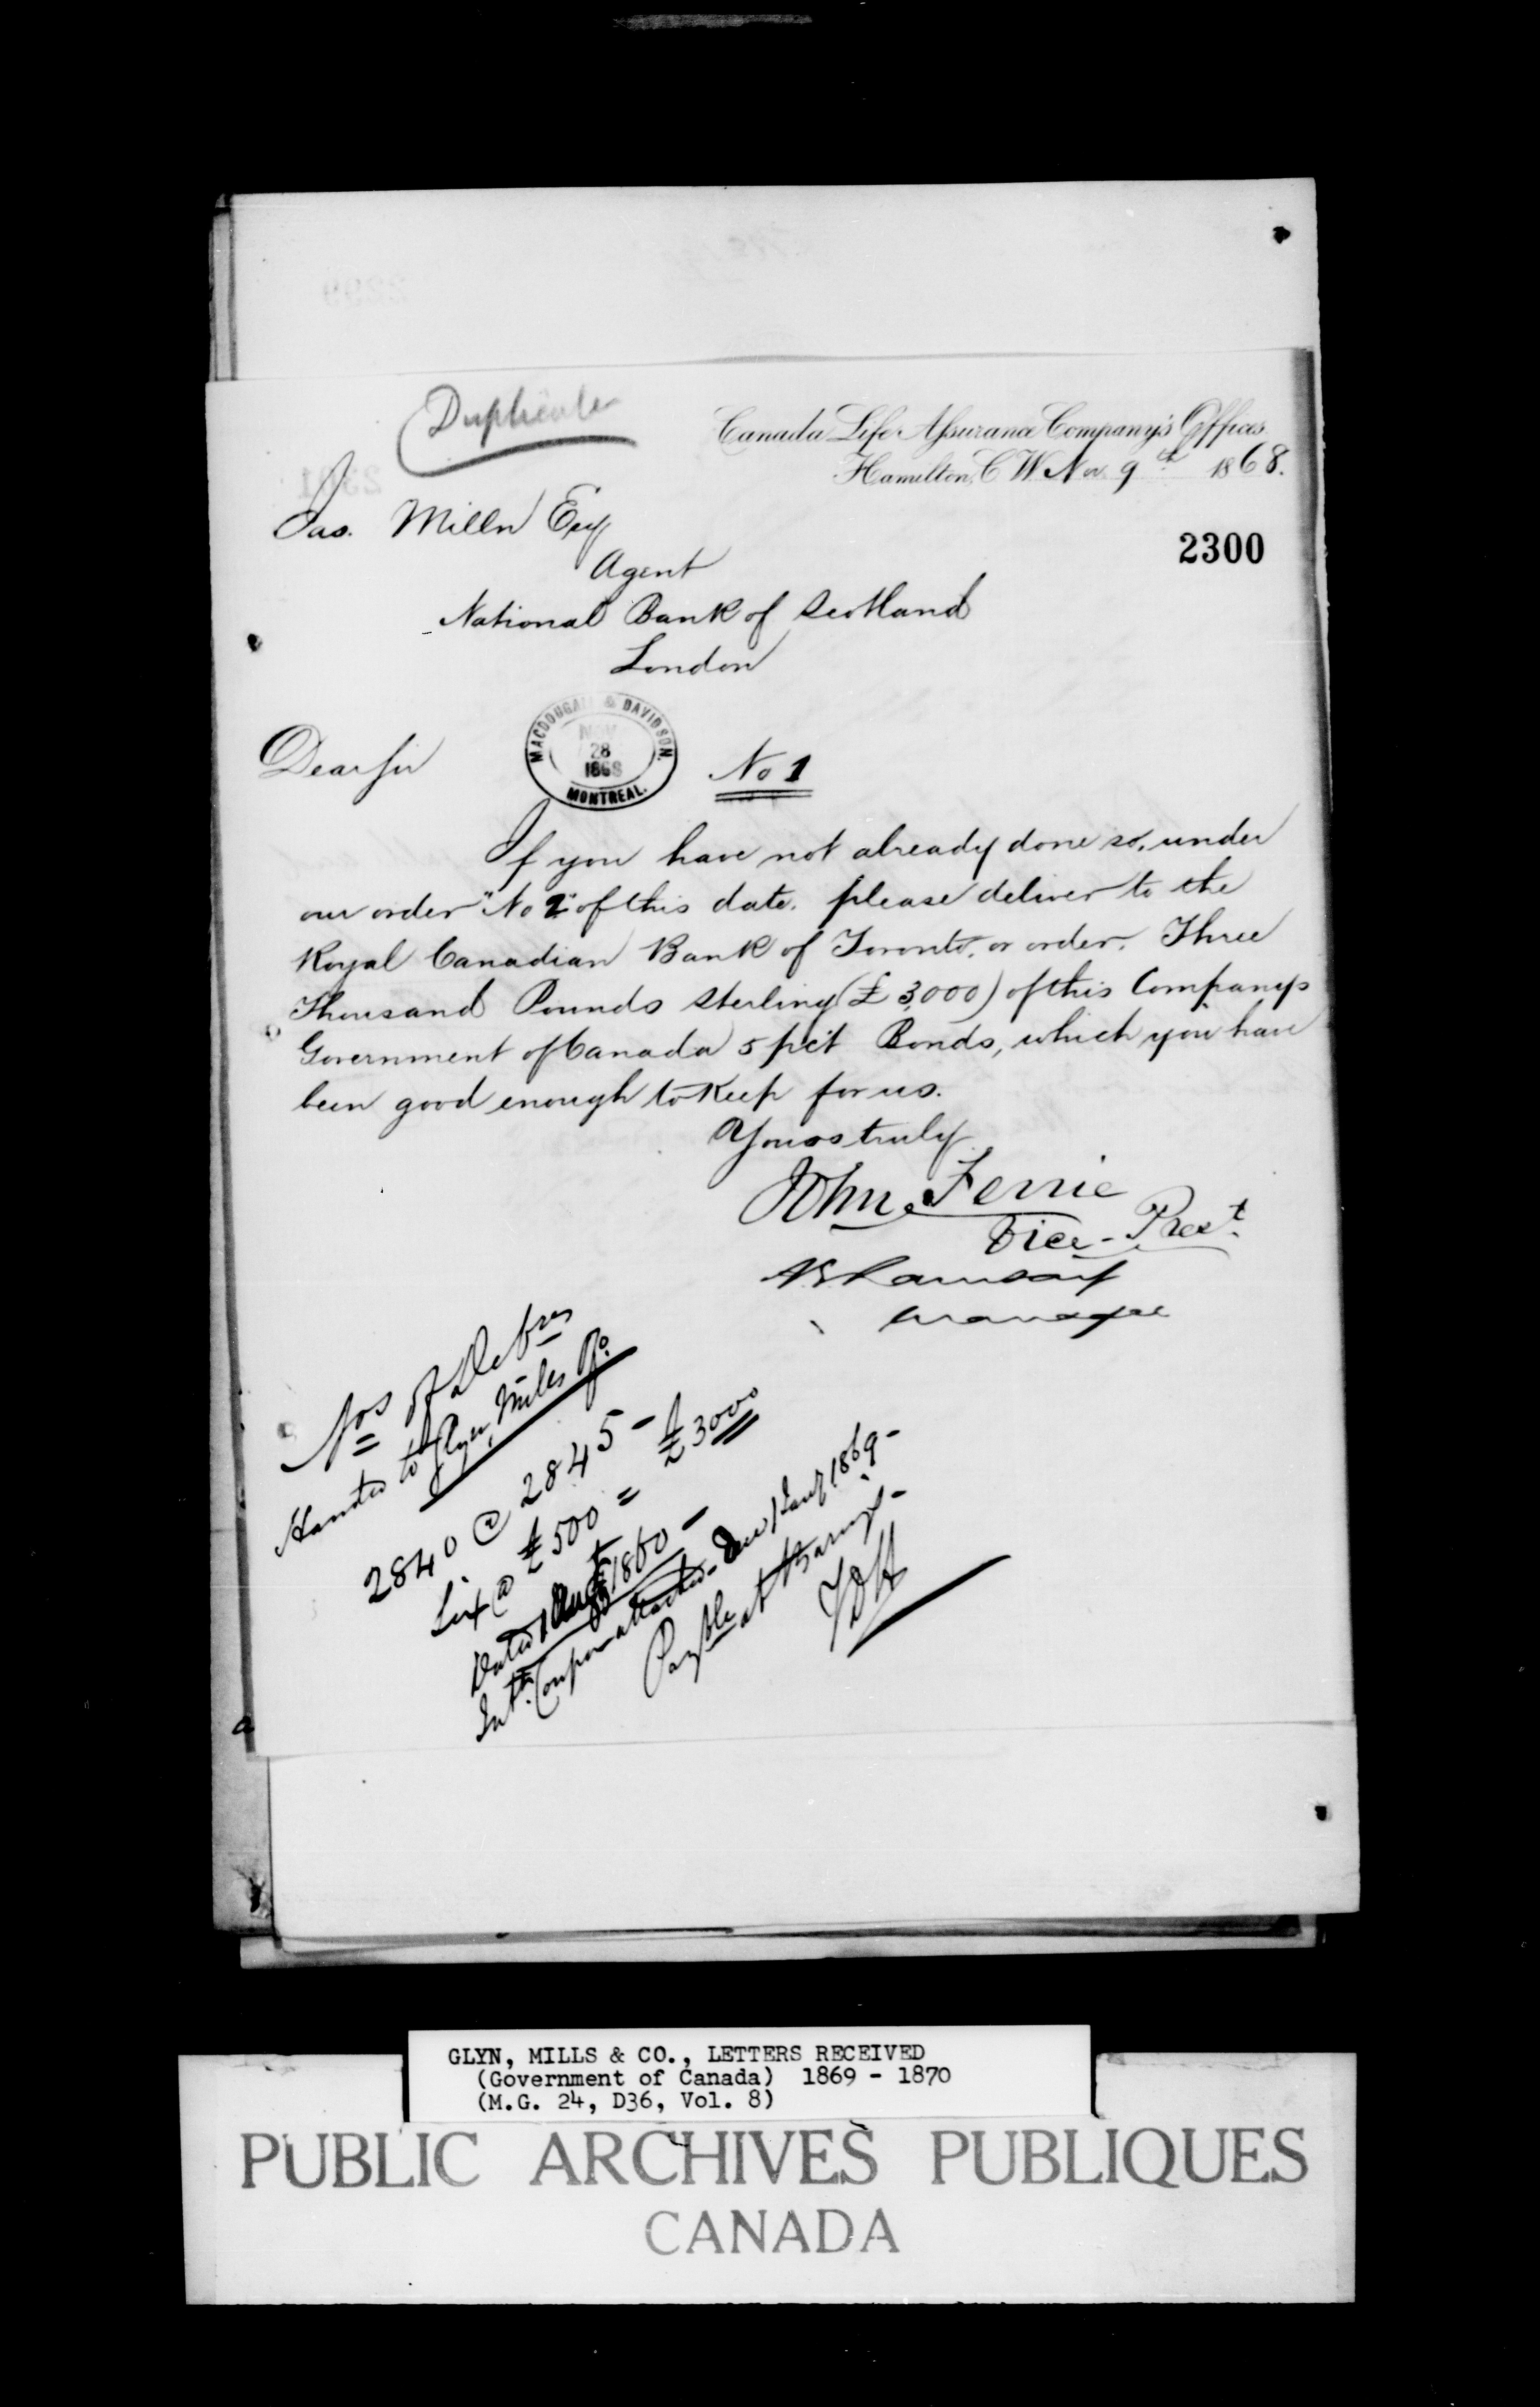 Duplicate
Canada Life Assurance Company's Offices
Hamilton, C W Nov 9th 1868.
2300
Jas. Milln Esq
Agent
National Bank of Scotland
London
MACDOUGALL & DAVIDSON.
NOV
28
1868
MONTREAL.
Dear Sir
No 1
If you have not already done so, under
our order "No 2" of this date. please deliver to the
Royal Canadian Bank of Toronto, or order. Three
Thousand Pounds Sterling (£3,000) of this Companys
Government of Canada 5 pct Bonds, which you have
been good enough to keep for us.
Yours truly
John Ferrie
Vice-Prest.
A G Ramsay
Manager
Nos of Debres
Handed to Glyn, Mills Co.
2840 @ 2845 -
Six @ £500 = £3000
Dated 1 Augt 1860 -
Intt. Coupon attached - Due 1 Jany 1869 -
Payble at Barings -
GLYN, MILLS & CO., LETTERS RECEIVED
(Government of Canada) 1869 - 1870
(M.G. 24, D36, Vol. 8)
PUBLIC ARCHIVES PUBLIQUES
CANADA